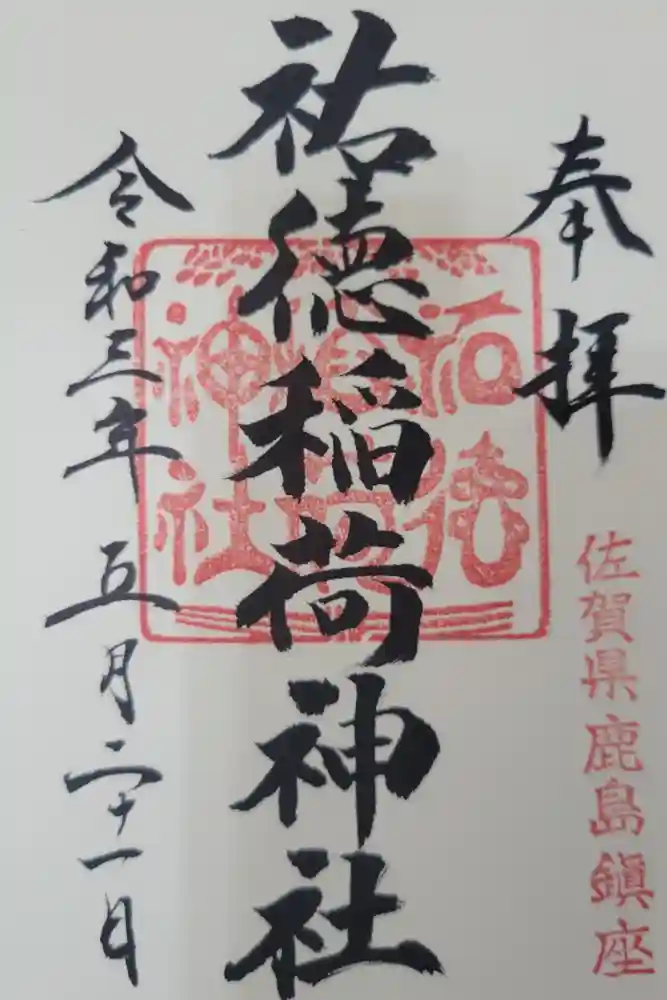 奉拝
佐賀県鹿島鎮座
祐徳稲荷神社
祐徳
稲荷
神社
令和三年五月二十一日